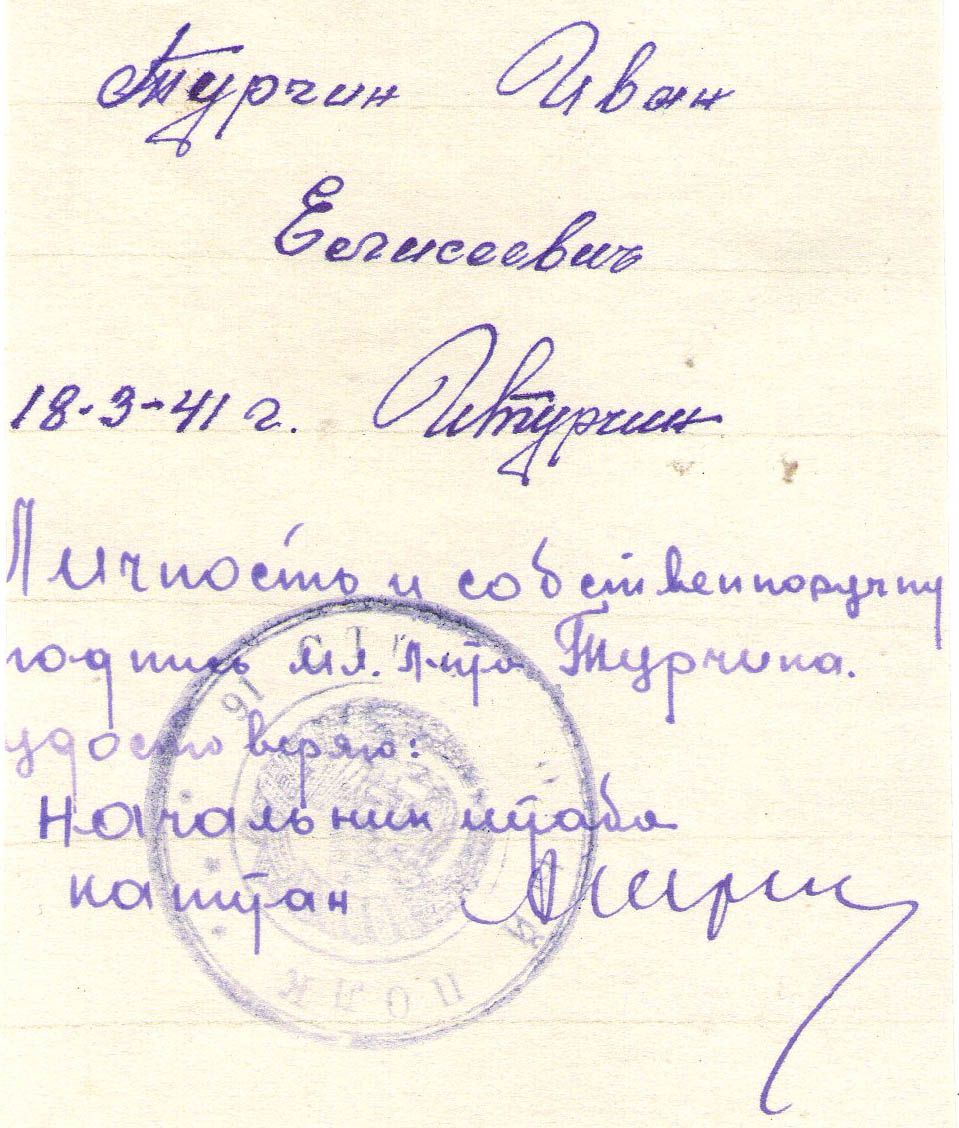 Турчин Иван
Елисеевич
18-3-41 г. ИТурчин
Личность и собственноручну
подпись мл. л-та Турчина.
удостоверяю:
Начальник штаба
капитан
ПОЛК